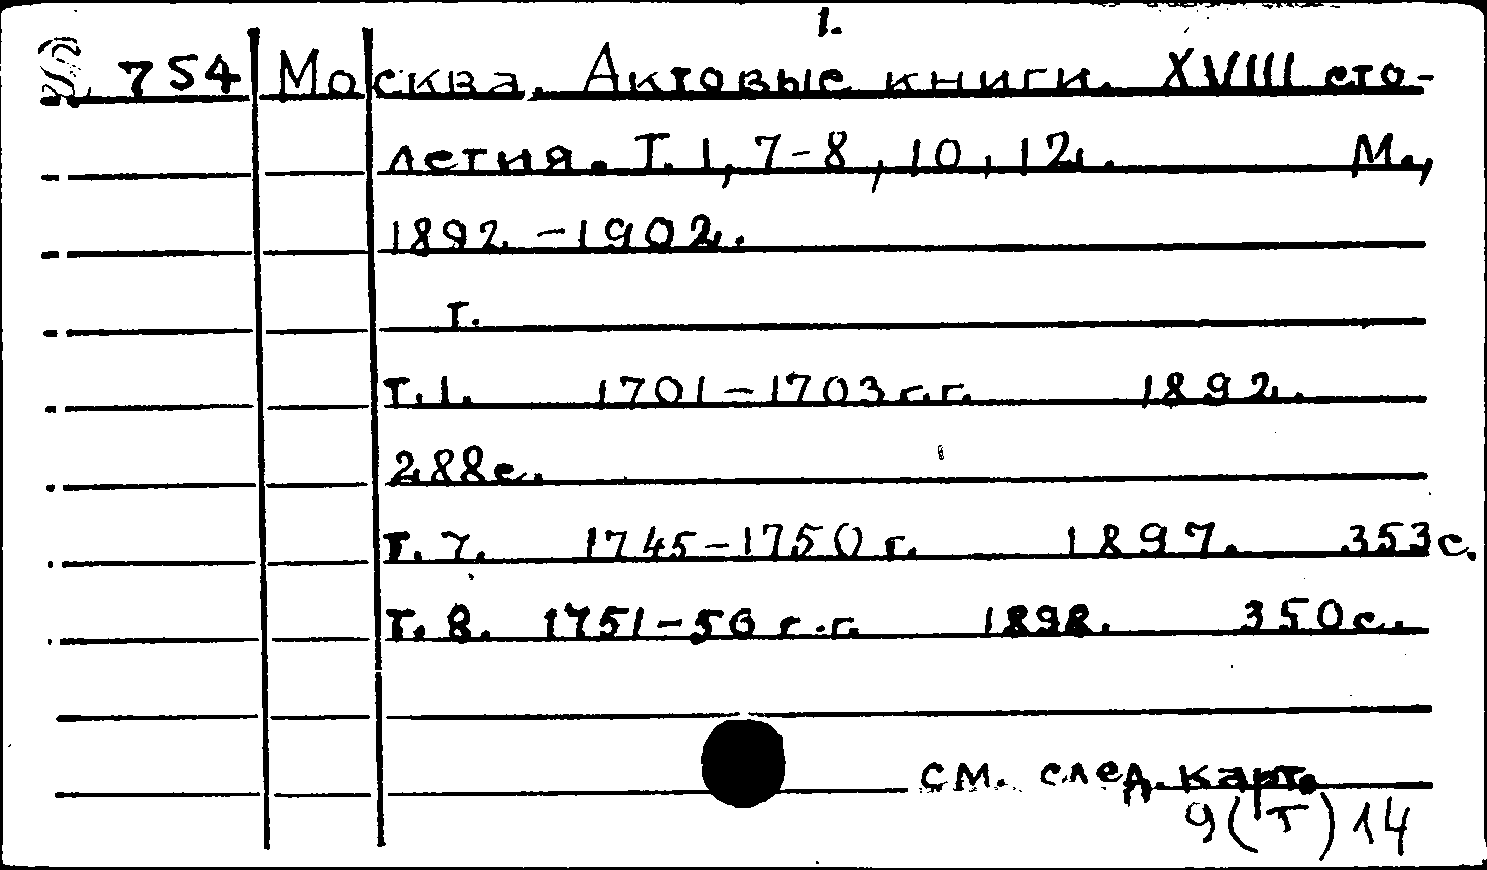 1.
754 Москва. Актовые книги. XVIII сто-
летия. Т. 1, 7-8, 10, 12. М.,
1892-1902.
т.
т. 1. 1701-1703 г.г. 1892.
288 с.
т. 7. 1745-1750 г. 1897. 353 с.
т. 8. 1751-56 г.г. 1898. 350 с.
см. след. карт.
9(Т)14